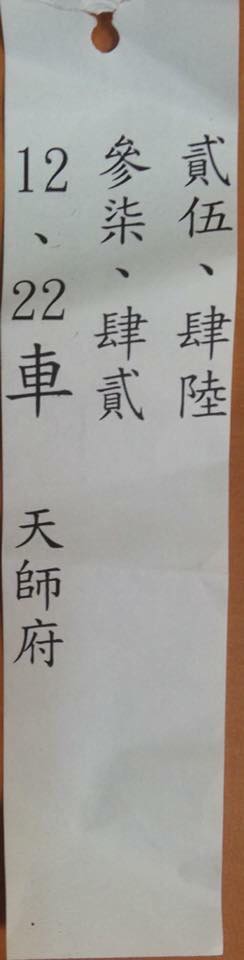 貳伍、肆陸
參柒、肆貳
12、22車 天師府